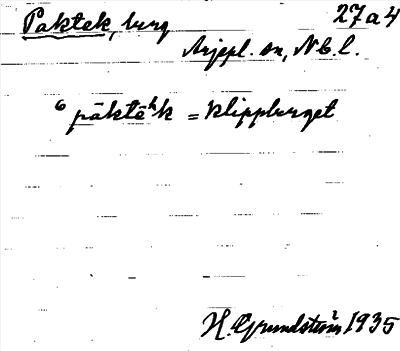 Paktek, berg 27a4
Arjepl. sn, Nb. l.
6 päktēʰk = klippberget
H. Grundström 1935